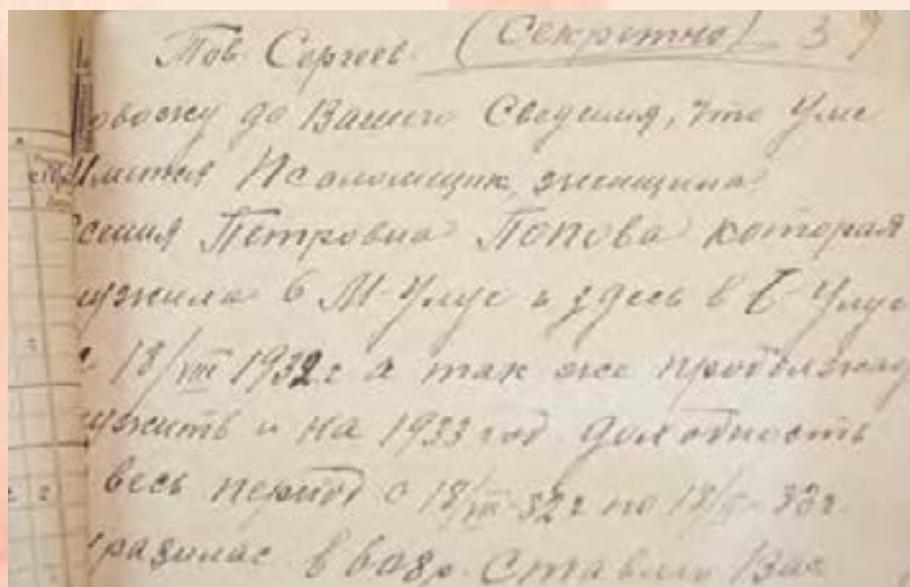 Тов. Сергеев. (Секретно) 3
овожу до Вашего Сведения, что у мс
Имется Псаломщик, женщина
сения Петровна Попова которая
ужила в М-Улус и здесь в Улус
18/VIII 1932 г а так же продолжад
ужить и на 1933 год доходность
весь период с 18/VIII-32 г по 18/ 33 г.
разилас в 608 р. Ставлю Вас